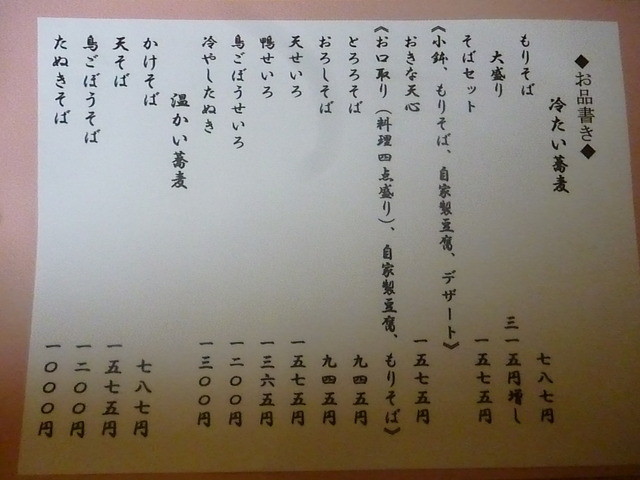 ◆お品書き◆
冷たい蕎麦
もりそば 七八七円
大盛り 三一五円増し
そばセット 一五七五円
《小鉢、もりそば、自家製豆腐、デザート》
おきな天心 一五七五円
《お口取り（料理四点盛り）、自家製豆腐、もりそば》
とろろそば 九四五円
おろしそば 九四五円
天せいろ 一五七五円
鴨せいろ 一三六五円
鳥ごぼうせいろ 一二〇〇円
冷やしたぬき 一三〇〇円
温かい蕎麦
かけそば 七八七円
天そば 一五七五円
鳥ごぼうそば 一二〇〇円
たぬきそば 一〇〇〇円